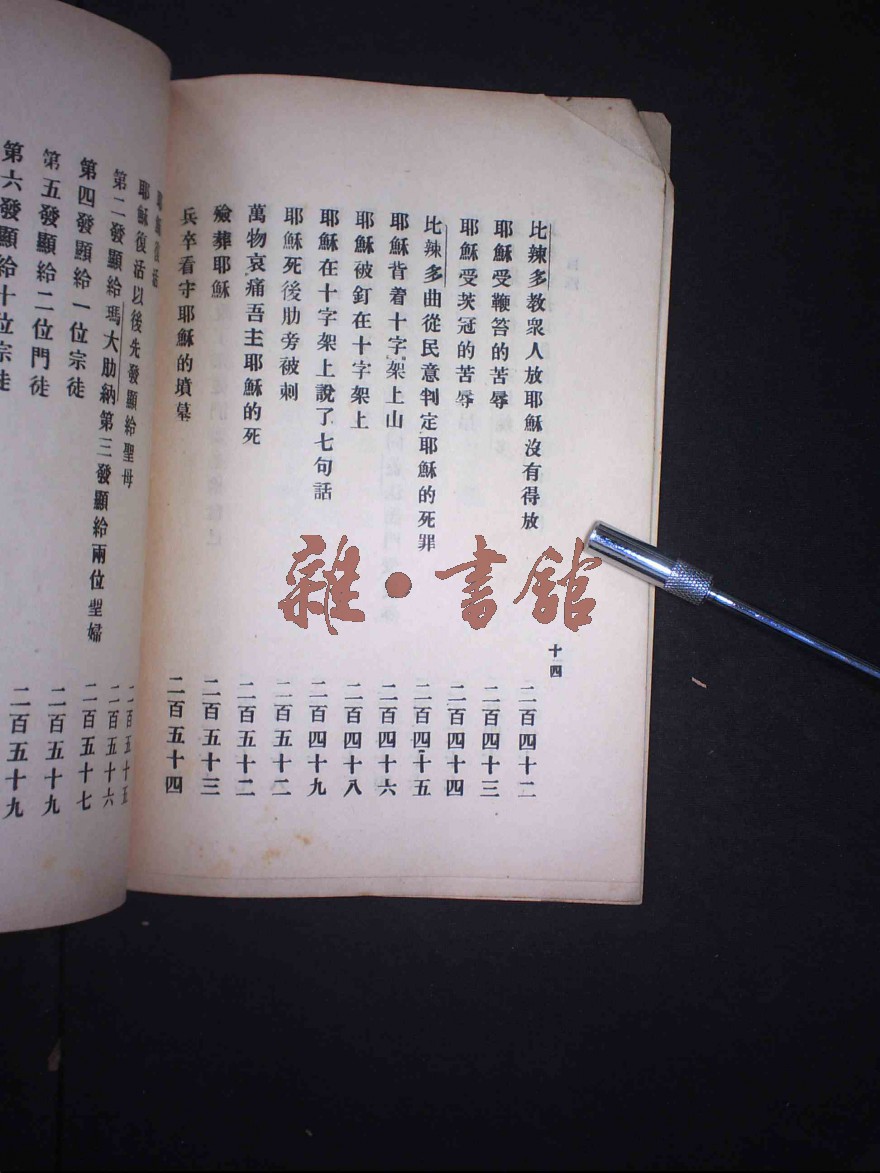 比辣多教衆人放耶穌沒有得放 二百四十二
耶穌受鞭笞的苦辱 二百四十三
耶穌受茨冠的苦辱 二百四十四
比辣多曲從民意判定耶穌的死罪 二百四十五
耶穌背着十字架上山 二百四十六
耶穌被釘在十字架上 二百四十八
耶穌在十字架上說了七句話 二百四十九
耶穌死後肋旁被刺 二百五十二
萬物哀痛吾主耶穌的死 二百五十二
殮葬耶穌 二百五十三
兵卒看守耶穌的墳墓 二百五十四
十四
耶穌復活 二百五十五
耶穌復活以後先發顯給聖母 二百五十六
第二發顯給瑪大肋納第三發顯給兩位聖婦
第四發顯給一位宗徒 二百五十七
第五發顯給二位門徒 二百五十九
第六發顯給十位宗徒 二百五十九
雜·書舘